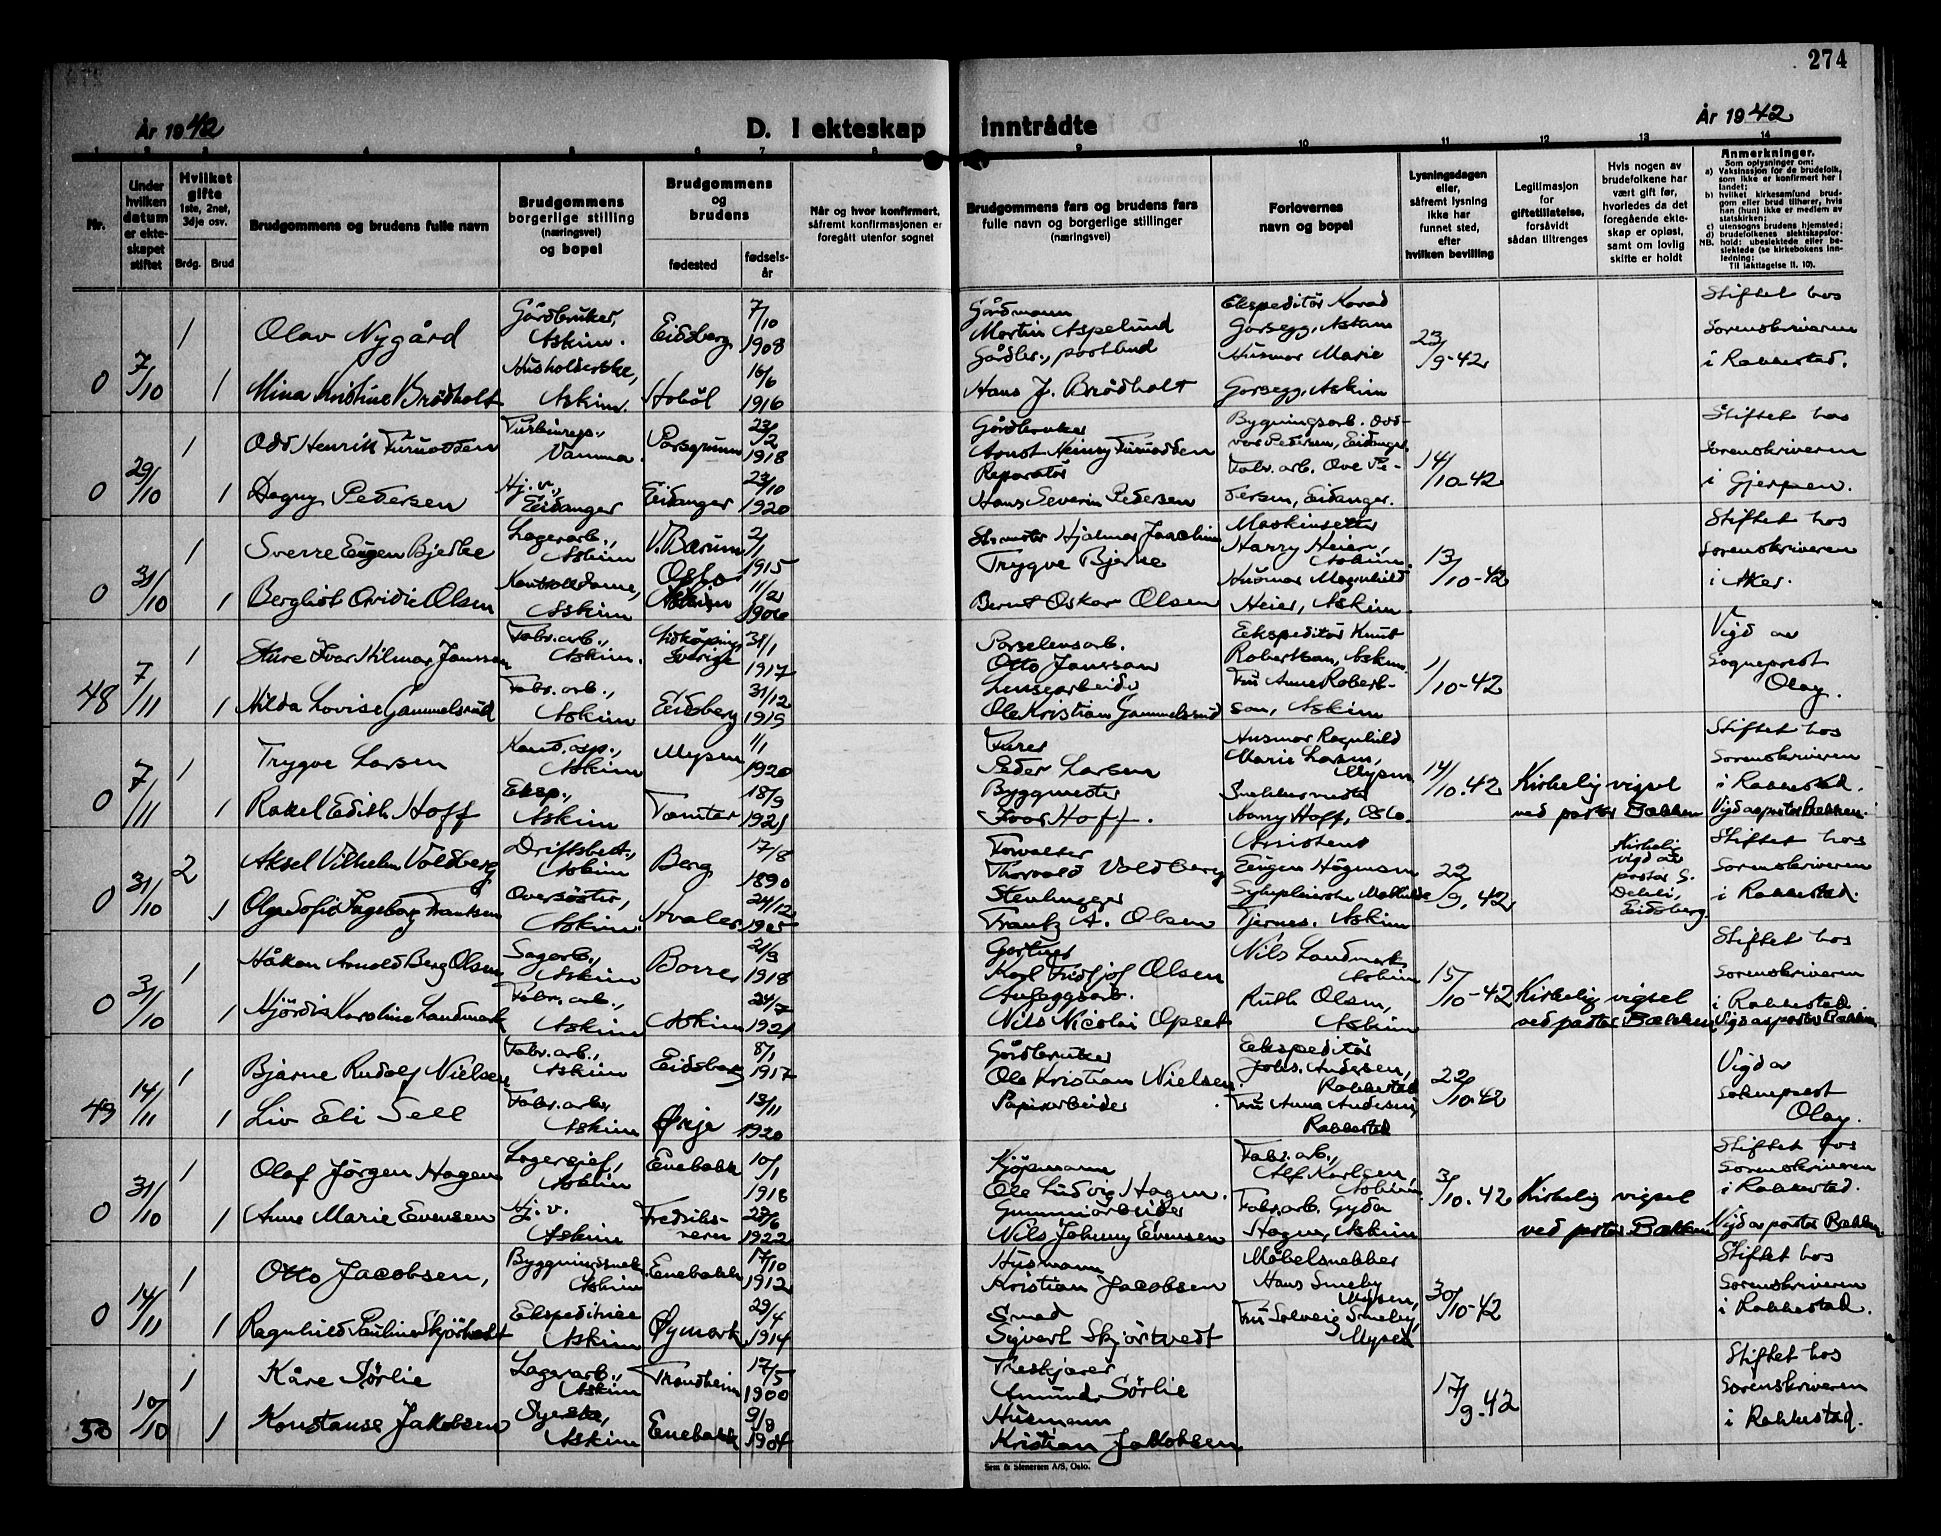 274
År 1942
D. I ekteskap inntrådte
År 1942
1 2 3 4 5 6 7 8 9 10 11 12 13 14
Nr.
Under hvilken datum er ekteskapet stiftet
Hvilket gifte
1ste, 2net, 3dje osv.
Brdg. Brud
Brudgommens og brudens fulle navn
Brudgommens borgerlige stilling
(næringsvei)
og bopel
Brudgommens og brudens
fødested
fødselsår
Når og hvor konfirmert, såfremt konfirmasjonen er foregått utenfor sognet
Brudgommens fars og brudens fars
fulle navn og borgerlige stillinger
(næringsvei)
Forlovernes
navn og bopel
Lysningsdagen eller, såfremt lysning ikke har funnet sted, efter hvilken bevilling
Legitimasjon for giftetillatelse, forsåvidt sådan tiltrenges
Hvis nogen av brudefolkene har vært gift før, hvorledes da det foregående ekteskap er opløst, samt om lovlig skifte er holdt
Anmerkninger.
Som oplysninger om:
a) Vaksinasjon for de brudefolk, som ikke er konfirmert her i landet;
b) hvilket kirkesamfund brudgom eller brud tilhører, hvis han (hun) ikke er medlem av statskirken;
c) utensogns brudens hjemsted;
d) brudefolkenes slektskapsforhold: ubeslektede eller beslektede (se kirkebokens innledning:
NB. Til iakttagelse II. 10).
0 7/10
1 Olav Nygård
Gårdbruker, Askim.
Eidsberg
7/10 1908
1 Mina Kristine Brødholt
Husholderske, Askim.
Hobøl
16/6 1916
Gårdmann
Martin Aspelund
Gårdbr., postbud
Hans J. Brødholt
Ekspeditør Konrad
Gorsegg, Askim
Husmor Marie
Gorsegg, Askim
23/9-42
Stiftet hos
Sorenskriveren
i Rakkestad.
0 29/10
1 Odd Henrik Furuodden
Turbinrep., Vamma.
Porsgrunn
23/2 1918
1 Dagny Pedersen
Hj.v., Eidanger
Eidanger
23/10 1920
Gårdbruker
Arnot Henry Furuodden
Reparatør
Hans Severin Pedersen
Bygningsarb. Oddvar Pedersen, Eidanger.
Fabr. arb. Ove Pedersen, Eidanger.
14/10-42
Stiftet hos
Sorenskriveren
i Gjerpen.
0 31/10
1 Sverre Eugen Bjerke
Lagerarb., Askim
V. Bærum
2/1 1915
1 Bergliot Ovidie Olsen
Kontordame, Askim
Oslo
11/2 1906
Trygve Bjerke
Bernt Oskar Olsen
Maskinsetter
Harry Heier, Askim
Husmor Magnhild
Heier, Askim
13/10-42
Stiftet hos
Sorenskriveren
i Aker.
48 7/11
1 Sture Ivar Hilmar Janssan
Fabr. arb., Askim.
Lidköping, Sverige
31/1 1917
1 Hilda Lovise Gammelsrud
Fabr. arb., Askim
Eidsberg
31/12 1919
Porselensarb.
Otto Janssan
Lensearbeider
Ole Kristian Gammelsrud
Ekspeditør Knut
Robertsan, Askim
Fru Anne Robertson, Askim
1/10-42
Vigd av
Sogneprest
Olay.
0 7/11
1 Trygve Larsen
Kont. asp., Askim
Mysen
1/1 1920
1 Rakel Edith Hoff
Eksp., Askim
Tomter
18/9 1921
Furer
Peder Larsen
Byggmester
Ivar Hoff.
Husmor Ragnhild
Marie Larsen, Mysen
Snekkermester
Harry Hoff, Oslo.
14/10.42
Kirkelig vigsel
ved pastor Bækken
Stiftet hos
Sorenskriveren
i Rakkestad.
Vigd av pastor Bækken.
0 31/10
2 Aksel Vilhelm Voldberg
Driftsbest., Askim
Berg
17/8 1890
1 Olga Sofie Ingeborg Frantzen
Oversøster, Askim.
Hvaler
24/12
Forvalter
Thorvald Voldberg
Stenhugger
Frantz A. Olsen
Assistent
Eugen Högmoen
Sykepleierske Mathilde
Tjernes. Askim
22/9.42
Kirkelig vigd av pastor G.
Eidsberg
Stiftet hos
Sorenskriveren
i Rakkestad.
0 31/10
1 Håkon Arnold Berg Olsen
Sagarb., Askim
Borre
21/3 1918
1 Hjördis Karoline Landmark
Fabr. arb., Askim
Askim
24/7 1921
Gartner
Karl Fridtjof Olsen
Anleggsarb.
Nils Nicolai Opset
Nils Landmark
Askim
Ruth Olsen,
Askim
15/10-42
Kirkelig vigsel
ved pastor Bækken
Stiftet hos
Sorenskriveren
i Rakkestad
Vigd av pastor Bækken
49 14/11
1 Bjarne Rudolf Nielsen
Fabr. arb., Askim
Eidsberg
8/1 1917
1 Liv Eli Sell
Fabr. arb, Askim
Ørje
13/11 1920
Gårdbruker
Ole Kristian Nielsen.
Papirarbeider
Ekspeditør
Johs. Andersen,
Rakkestad
Fru Anna Andersen,
Rakkestad
22/10-42
Vigd av
Sokneprest
Olay.
0 31/10
1 Olaf Jörgen Hagen
Lagersjef, Askim
Enebakk
10/1 1918
1 Anne Marie Evensen
Hj. v. Askim
Fredriksværn
23/6 1922
Kjöpmann
Ole Ludvig Hagen.
Gummiarbeider
Nils Johnny Evensen
Fabr. arb.,
Alf Karlsen,
Askim
Fabr. arb. Gyda
Hagen, Askim
3/10.42
Kirkelig vigsel
ved pastor Bækken
Stiftet hos
Sorenskriveren
i Rakkestad.
Vigd av pastor Bækken
0 14/11
1 Otto Jacobsen,
Bygningssnek. Askim
Enebakk
17/10 1912
1 Ragnhild Pauline Skjörtvedt
Ekspeditrise Askim
Øymark
29/4 1914
Husmann
Kristian Jacobsen
Smed
Syvert Skjörtvedt
Möbelsnekker
Hans Smeby
Mysen,
Fru Solveig Smeby,
Mysen
30/10-42
Stiftet hos
Sorenskriveren
i Rakkestad.
50 10/10
1 Kåre Sörlie
Lagerarb., Askim
Trondheim
17/5 1900
1 Konstanse Jakobsen
Syerske, Askim
Enebakk
9/8 1904
Treskjærer
Amund Sörlie
Husmann
Kristian Jakobsen
17/9.42
Stiftet hos
Sorenskriveren
i Rakkestad.
Sem & Stenersen A/S, Oslo.